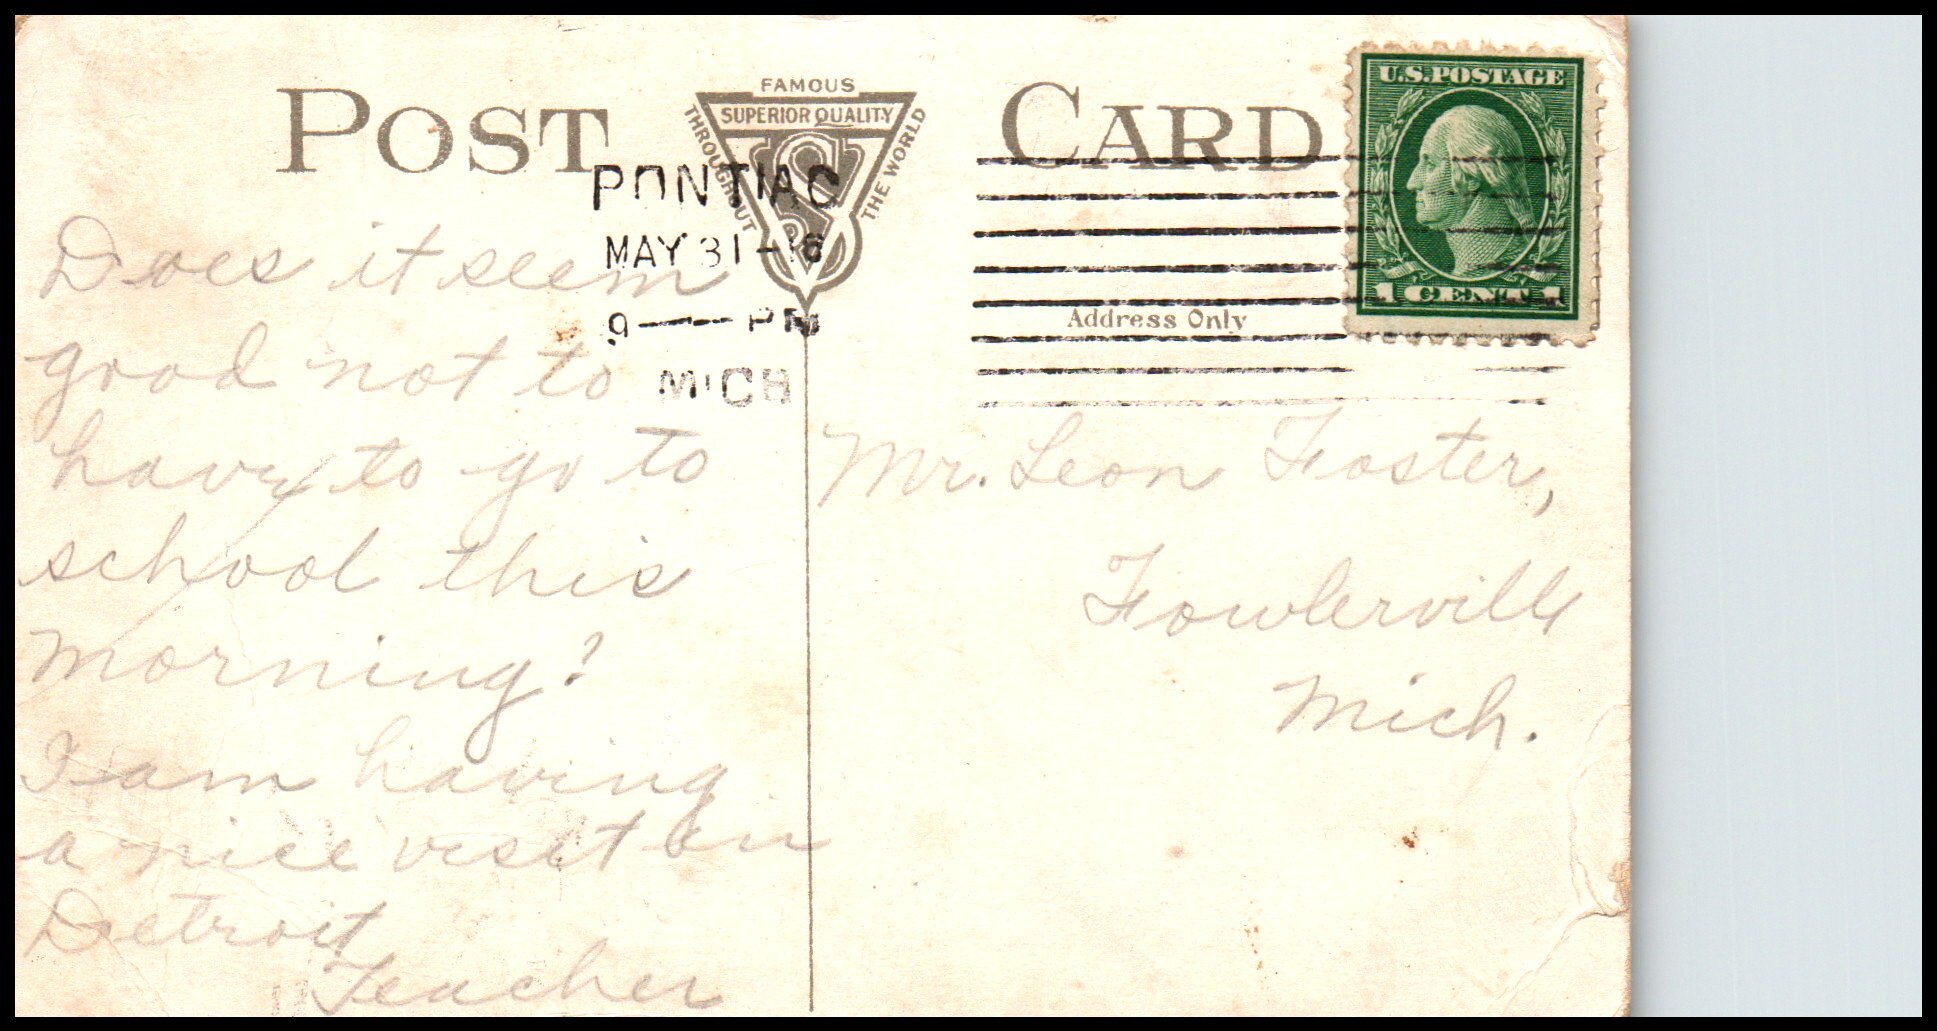 POST CARD
FAMOUS
SUPERIOR QUALITY
THROUGHOUT
THE WORLD
U.S. POSTAGE
1 CENT 1
PONTIAC
MAY 31 - 16
9 — PM
MICH
Address Only
Does it seem
good not to
have to go to
school this
morning?
I am having
a nice visit in
Detroit
Teacher
Mr. Leon Foster,
Fowlerville
Mich.